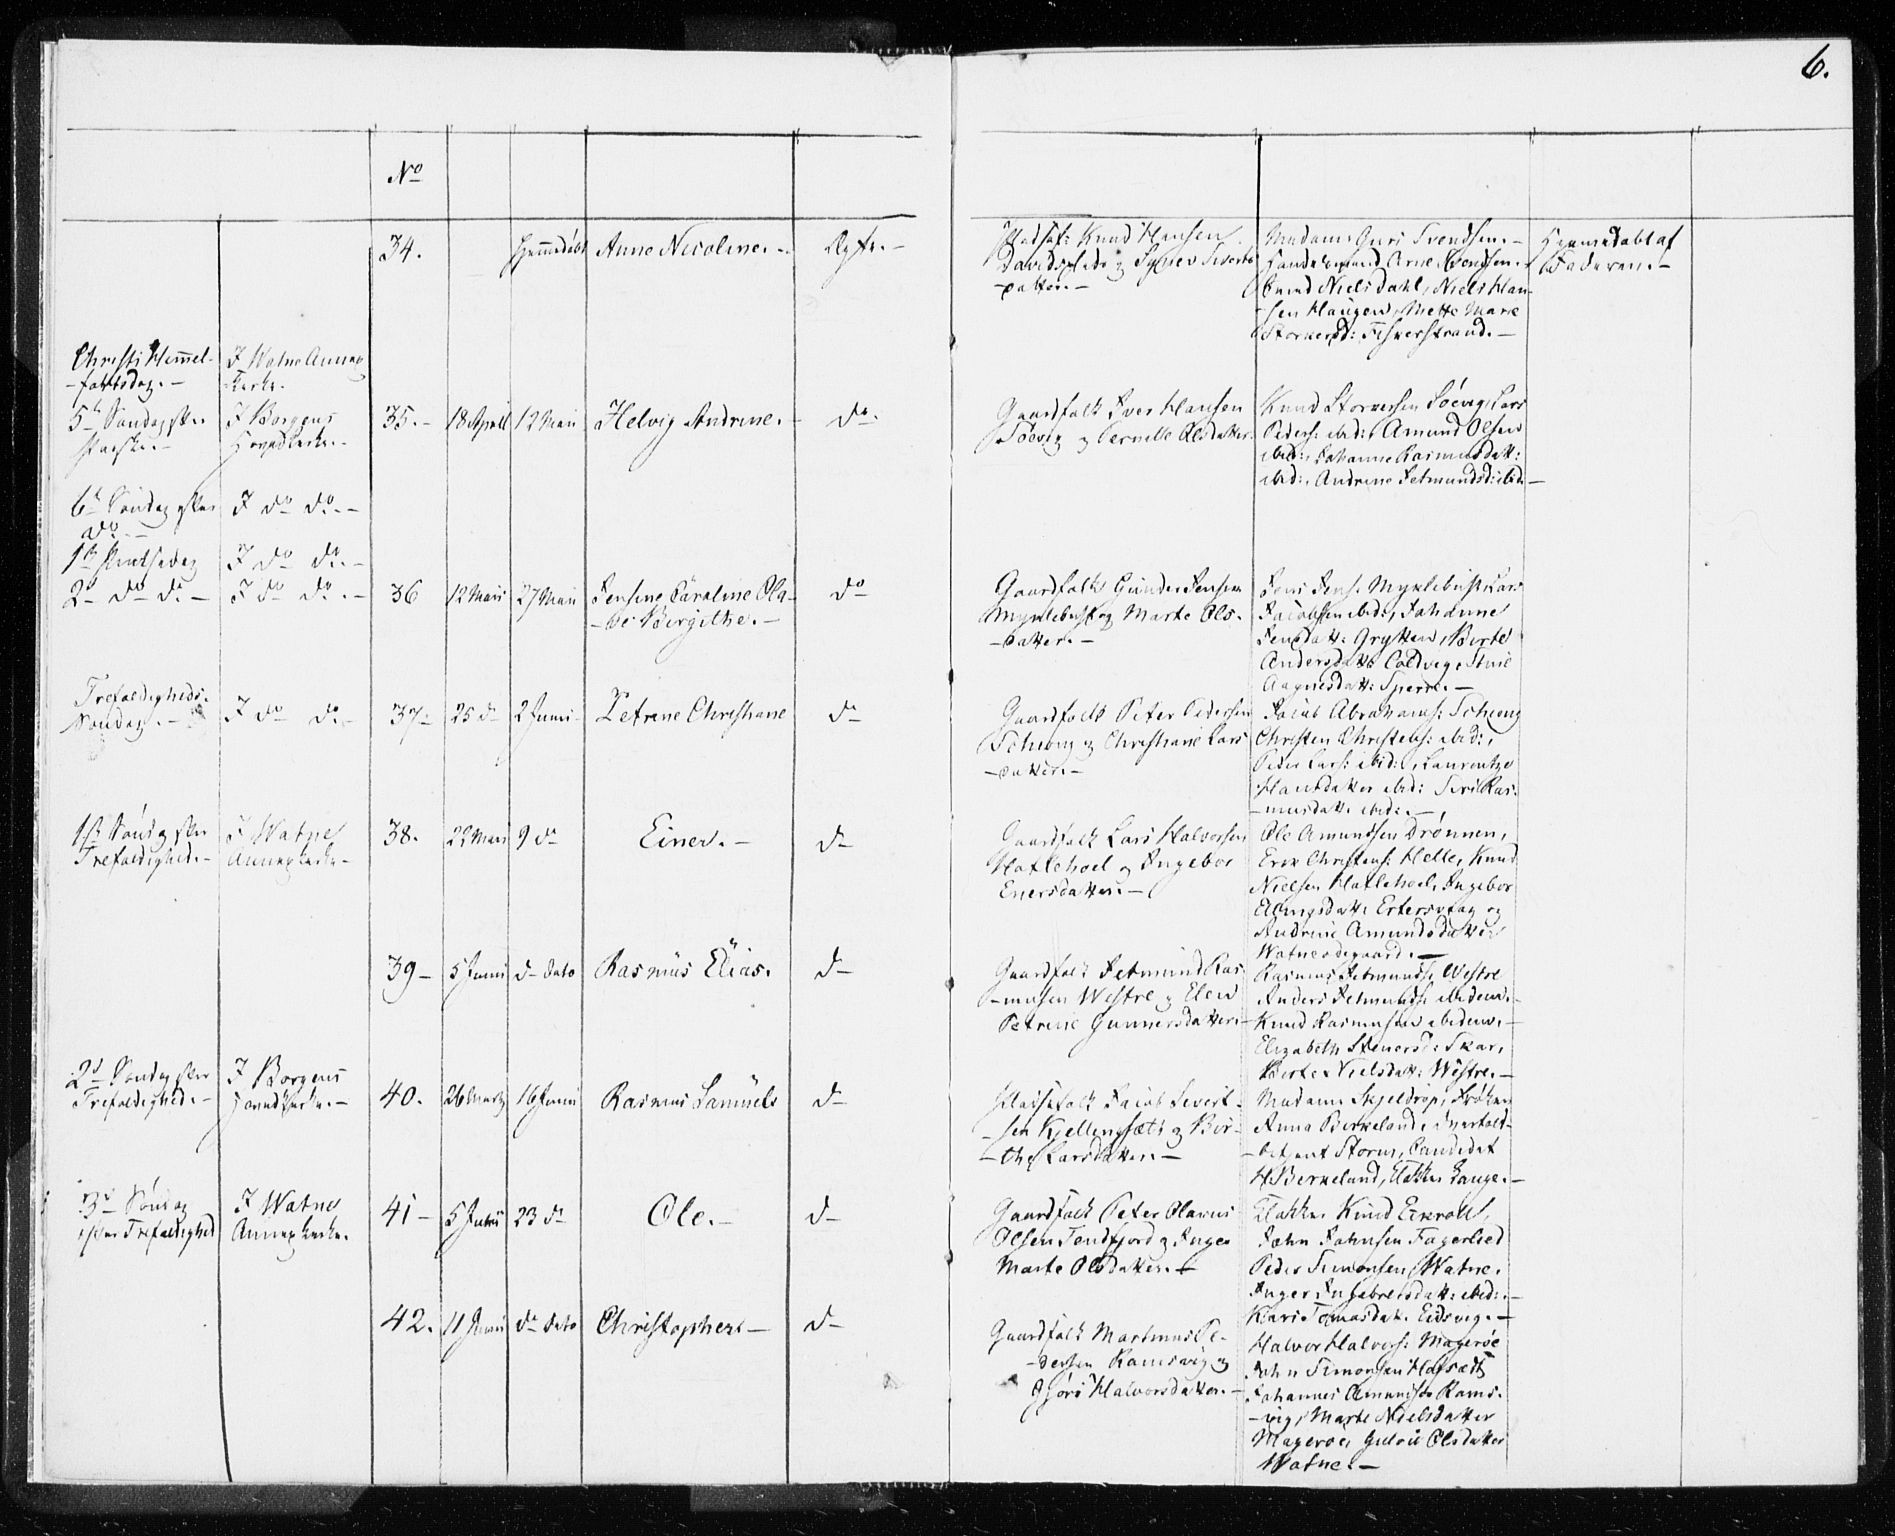 6.
No
34.
Hjemmedøbt
Anne Nicoline. -
Ægte. -
Knud Hansen
Davidsplads og Synev Siverts
-datter. -
Madam Guri Svendsen. -
Arne Svendsen.
Niels Dahl, Niels Han-
-sen Haugen, Mette Marie
Storkersd: Fiskerstrand. -
Hjemmedøbt af
Faderen. -
Christi Himmel-
-fartsdag. -
I Watne Annex
Kirke.
5te Søndag efter
Paaske. -
I Borgens
Hovedkirke. -
35. -
18 April
12 Maii
Helvig Andrine. -
do.
Gaardfolk Iver Hansen
Søevig og Pernille Olsdatter.
Knud Storkersen Søevig, Lars
Peders: ibid:, Amund Olsen
ibid:, Johanne Rasmusdatt:
ibid:, Andrine Jetmundsd: ibid. -
6te Søndag efter
do. -
I do do. -
1ste Pintsedag
I do do. -
2d do do. -
I do do. -
36
12 Maii
27 Maii
Jensine Caroline Ola-
-ve Birgithe. -
do
Gaardfolk Gunder Jensen
Myklebust og Marte Ols-
-datter. -
Jens Jens: Myklebust, Lars
Jacobsen ibid:, Johanne
Jensdatt: Grytten, Berte
Andersdatt: Coldevig, Stine
Aagesdatt: Sperre. -
Trefoldigheds-
Søndag. -
I do do. -
37. -
25 do
2 Junii
Petrine Christiane
do
Gaardfolk Peter Pedersen
Schiong og Christiane Lars
-datter. -
Jacob Abrahams: Schiong
Christen Christens: ibid:,
Peder Lars: ibid:, Laurentze
Hansdatter ibid: Siri Ras-
-musdatt: ibid: -
1ste Sønd: efter
Trefoldighed. -
I Watne
Annexkirke -
38.
22 Maii
9 do
Einer. -
do
Gaardfolk Lars Halvorsen
Hatlehoel og Ingebor
Enersdatter. -
Ole Amundsen Drønnen,
Erik Christens: Helle, Knud
Nielsen Hatlehoel, Ingebor
Ellingsdatt: Eitersvaag og
Andrine Amundsdatter
Watneødegaard. -
39 -
5 Junii
do dato
Rasmus Elias.
do
Gaardfolk Jetmund Ras-
-musen Westre og Elen
Petrine Gunnersdatter. -
Rasmus Jetmunds: Westre
Anders Jetmunds: ibidem. -
Knud Rasmusen ibidem. -
Elizabeth Steners: Skar,
Berte Nielsdatt: Westre. -
2d Søndag efter
Trefoldighed. -
I Borgens
Hovedkirke. -
40.
26 Marty
16 Junii
Rasmus Samuels
do
Jacob Sivert-
-sen Kjellingsæth og Bir-
-the Larsdatter. -
Madam Skjeldrop, Frøken
Anna Birkeland,
Storm, Candidat
H. Birkeland, Klokker Lange. -
3d Søndag
efter Trefoldighed
I Watne
Annexkirke.
41 -
5 Junii
23 do
Ole. -
do
Gaardfolk Peter Olarius
Olsen Tendfjord og Inger
Marte Olsdatter. -
Klokker Knud
John Johnsen Fagerlied
Peder Simonsen Watne.
Inger Ingebretsdatt: ibid: -
Kari Tomasdatt: Eidsvig. -
42.
11 Junii
do dato
Christopher -
do
Gaardfolk Martinus Pe-
-dersen Ramsvig og
Gjøri Halvorsdatter. -
Halvor Halvors: Magerøe
John Simonsen Hofsæth
Johannes Amundsen Rams-
-vig, Marte Nielsdatter
Magerøe, Gulrie Olsdatter
Watne. -